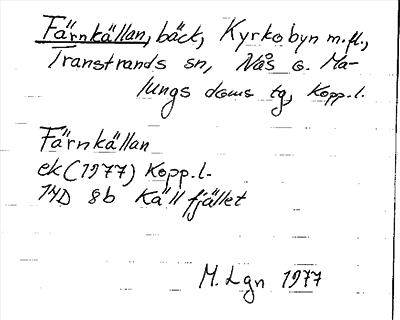 Färnkällan, bäck, Kyrkobyn m.fl.,
Transtrands sn, Nås o. Ma-
lungs doms tg, Kopp.l.
Färnkällan
ek (1977) Kopp.l.
14D 8b Källfjället
M. Lgn 1977